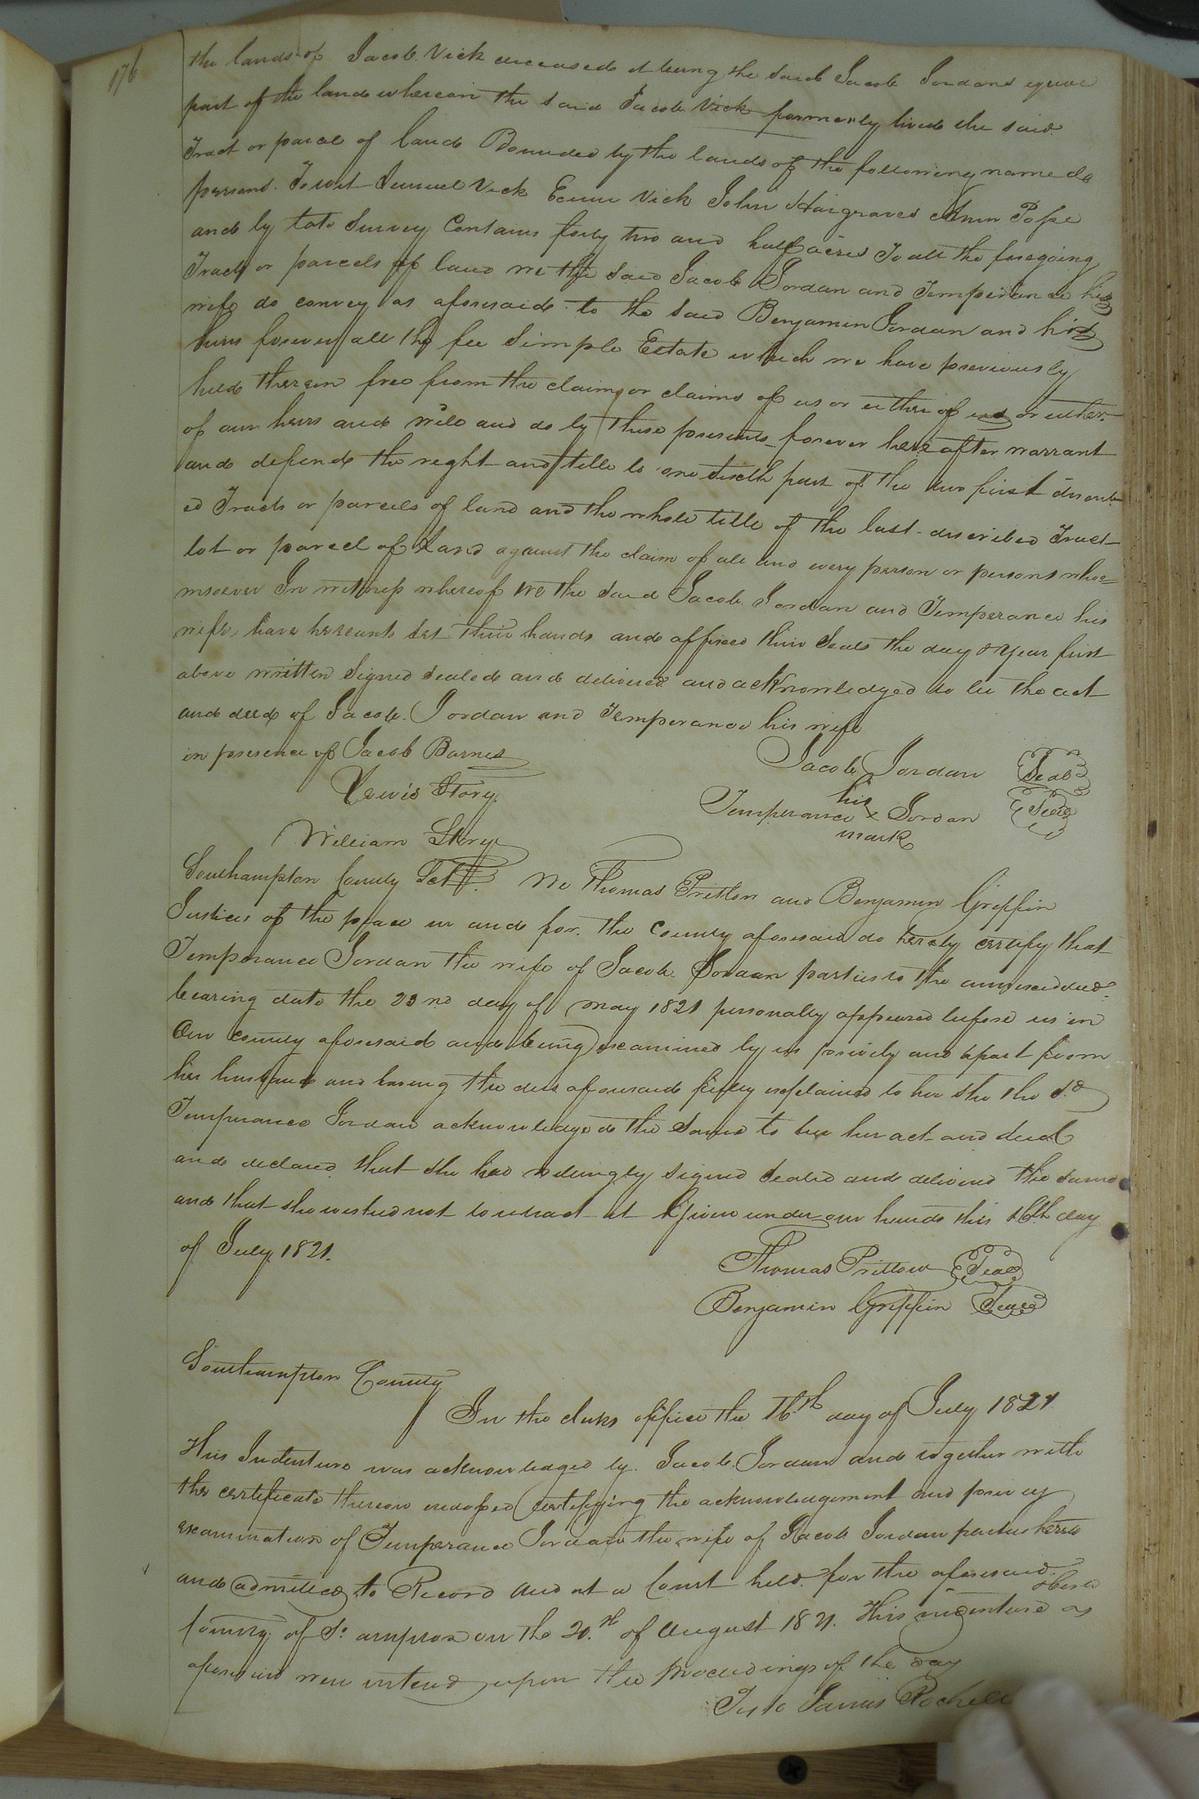 176
the lands of Jacob Vick deceased it being the said Jacob Jordans equal
part of the land whereon the said Jacob Vick formerly lived the said
Tract or parcel of land Bounded by the lands of the following named
persons. Towit Samuel Vick Vick John Hargraves Pope
and by late Survey Contains forty two and half acres To all the foregoing
Tracts or parcels of land we the said Jacob Jordan and Temperance his
wife do convey as aforesaid to the said Benjamin Jordan and his
heirs forever all the fee Simple Estate which we have previously
held therein free from the claim or claims of us or either of us or either
of our heirs and will and do by these presents forever hereafter warrant
and defend the right and title to one sixth part of the two first describ
ed Tracts or parcels of land and the whole title of the last described Tract
lot or parcel of Land against the claim of all and every person or persons whoe=
msoever In witness whereof we the said Jacob Jordan and Temperance his
wife have hereunto set their hands and affixed their Seals the day & year first
above written Signed Sealed and delivered and acknowledged to be the act
and deed of Jacob Jordan and Temperance his wife
in presence of Jacob Barnes
Jacob Jordan Seal
Lewis Story
Temperance her x mark Jordan Seal
William Story
Southampton County Sct. We Thomas Pretlow and Benjamin Griffin
Justices of the peace in and for the County aforesaid do hereby certify that
Temperance Jordan the wife of Jacob Jordan parties to the annexed deed
bearing date the 23nd day of May 1821 personally appeared before us in
Our county aforesaid and being examined by us privily and apart from
her husband and having the deed aforesaid fully explained to her she the sd
Temperance Jordan acknowledged the Same to be her act and deed
and declared that she had willingly signed Sealed and delivered the same
and that she wished not to retract it Given under our hands this 16th day
of July 1821.
Thomas Pretlow Seal
Benjamin Griffin Seal
Southampton County
In the clerks office the 16th day of July 1821
This Indenture was acknowledged by Jacob Jordan and together with
the certificate thereon endorsed Certifying the acknowledgement and privy
examination of Temperance Jordan the wife of Jacob Jordan parties hereto
and admitted to Record And at a Court held for the aforesaid
County of So ampton on the 20th of August 1821. This indenture as
aforesaid was entered upon the proceedings of the day
Teste James Rochelle